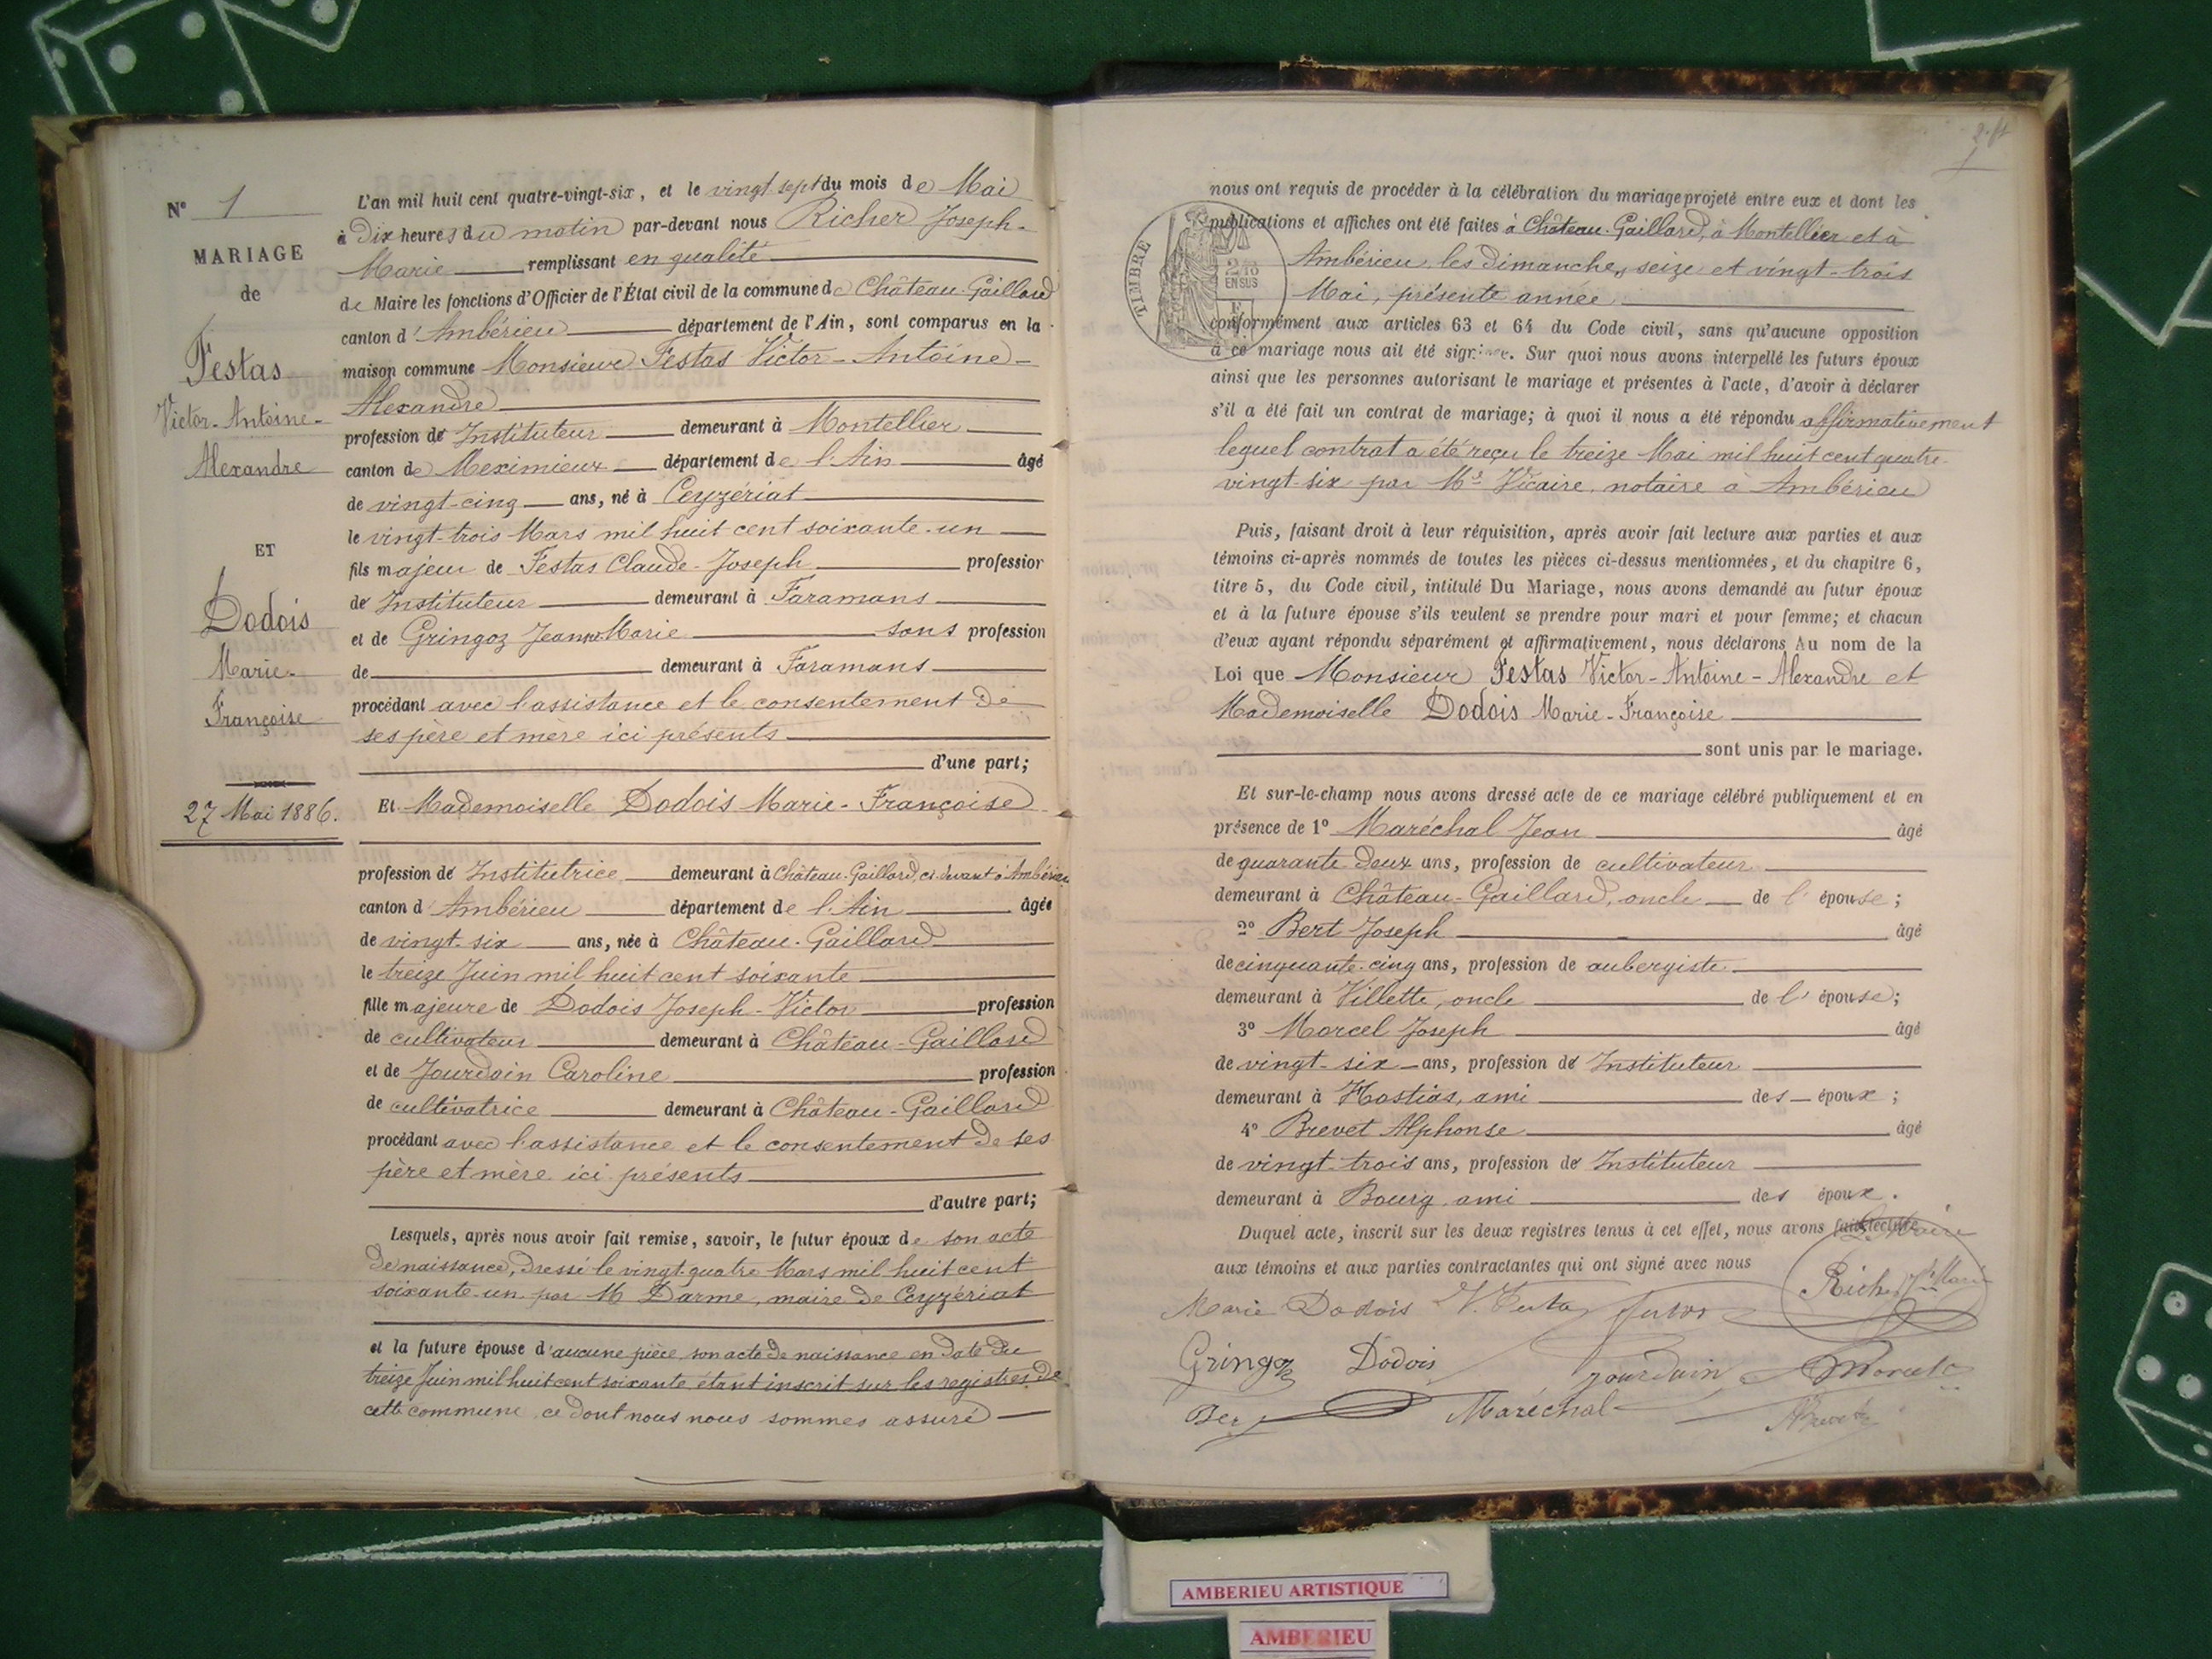 N° 1
MARIAGE
de
Festas
Victor-Antoine-
Alexandre
ET
Dodois
Marie-
Françoise
27 Mai 1886.
L'an mil huit cent quatre-vingt-six, et le vingt-sept du mois de Mai
à Dix heures du matin par-devant nous Richer Joseph-
Marie remplissant en qualité
de Maire les fonctions d'Officier de l'État civil de la commune de Château-Gaillard
canton d'Ambérieu département de l'Ain, sont comparus en la
maison commune Monsieur Festas Victor-Antoine-
Alexandre
profession de Instituteur demeurant à Montellier
canton de Meximieux département de l'Ain âgé
de vingt-cinq ans, né à Ceyzériat
le vingt-trois Mars mil huit cent soixante-un
fils majeur de Festas Claude-Joseph profession
de Instituteur demeurant à Faramans
et de Gringoz Jeanne Marie sans profession
de demeurant à Faramans
procédant avec l'assistance et le consentement de
ses père et mère ici présents
d'une part;
Et Mademoiselle Dodois Marie-Françoise
profession de Institutrice demeurant à Château-Gaillard, ci-devant à Ambérieu
canton d'Ambérieu département de l'Ain âgée
de vingt-six ans, née à Château-Gaillard
le treize Juin mil huit cent soixante
fille majeure de Dodois Joseph-Victor profession
de cultivateur demeurant à Château-Gaillard
et de Jourdain Caroline profession
de cultivatrice demeurant à Château-Gaillard
procédant avec l'assistance et le consentement de ses
père et mère ici présents
d'autre part;
Lesquels, après nous avoir fait remise, savoir, le futur époux de son acte
de naissance, dressé le vingt-quatre Mars mil huit cent
soixante-un par M Darme, maire de Ceyzériat
et la future épouse d'aucune pièce, son acte de naissance en date du
treize Juin mil huit cent soixante étant inscrit sur les registres de
cette commune, ce dont nous nous sommes assuré
nous ont requis de procéder à la célébration du mariage projeté entre eux et dont les
publications et affiches ont été faites à Château-Gaillard, à Montellier et à
Ambérieu, les Dimanches, seize et vingt-trois
Mai, présente année,
TIMBRE
EN SUS
conformément aux articles 63 et 64 du Code civil, sans qu'aucune opposition
à ce mariage nous ait été signifiée. Sur quoi nous avons interpellé les futurs époux
ainsi que les personnes autorisant le mariage et présentes à l'acte, d'avoir à déclarer
s'il a été fait un contrat de mariage; à quoi il nous a été répondu affirmativement
lequel contrat a été reçu le treize Mai mil huit cent quatre-
vingt-six par Me Vicaire, notaire à Ambérieu
Puis, faisant droit à leur réquisition, après avoir fait lecture aux parties et aux
témoins ci-après nommés de toutes les pièces ci-dessus mentionnées, et du chapitre 6,
titre 5, du Code civil, intitulé Du Mariage, nous avons demandé au futur époux
et à la future épouse s'ils veulent se prendre pour mari et pour femme; et chacun
d'eux ayant répondu séparément et affirmativement, nous déclarons Au nom de la
Loi que Monsieur Festas Victor-Antoine-Alexandre et
Mademoiselle Dodois Marie-Françoise
sont unis par le mariage.
Et sur-le-champ nous avons dressé acte de ce mariage célébré publiquement et en
présence de 1° Maréchal Jean âgé
de quarante-deux ans, profession de cultivateur
demeurant à Château-Gaillard, oncle de l'épouse;
2° Bert Joseph âgé
de cinquante-cinq ans, profession de aubergiste
demeurant à Villette, oncle de l'épouse;
3° Morcel Joseph âgé
de vingt-six ans, profession de Instituteur
demeurant à Hostias, ami des époux;
4° Brevet Alphonse âgé
de vingt-trois ans, profession de Instituteur
demeurant à Bourg, ami des époux.
Duquel acte, inscrit sur les deux registres tenus à cet effet, nous avons fait lecture
Le Maire
aux témoins et aux parties contractantes qui ont signé avec nous
Marie Dodois V. Festas Richer
Gringoz Dodois Jourdain Morcel
Maréchal Brevet
AMBERIEU ARTISTIQUE
AMBERIEU